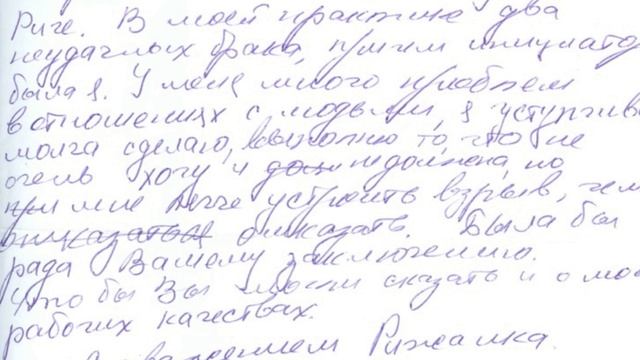 Риге. В моей практике два
неудачных брака, причем инициато
была я. У меня много проблем
в отношениях с людьми, я уступчива
молча сделаю, выполню то, что не
очень хочу и не должна, но
мне легче устроить взрыв, чем
отказать. Была бы
рада Вашему заключению.
Что бы Вы могли сказать и о мо
рабочих качествах.
Рижанка.